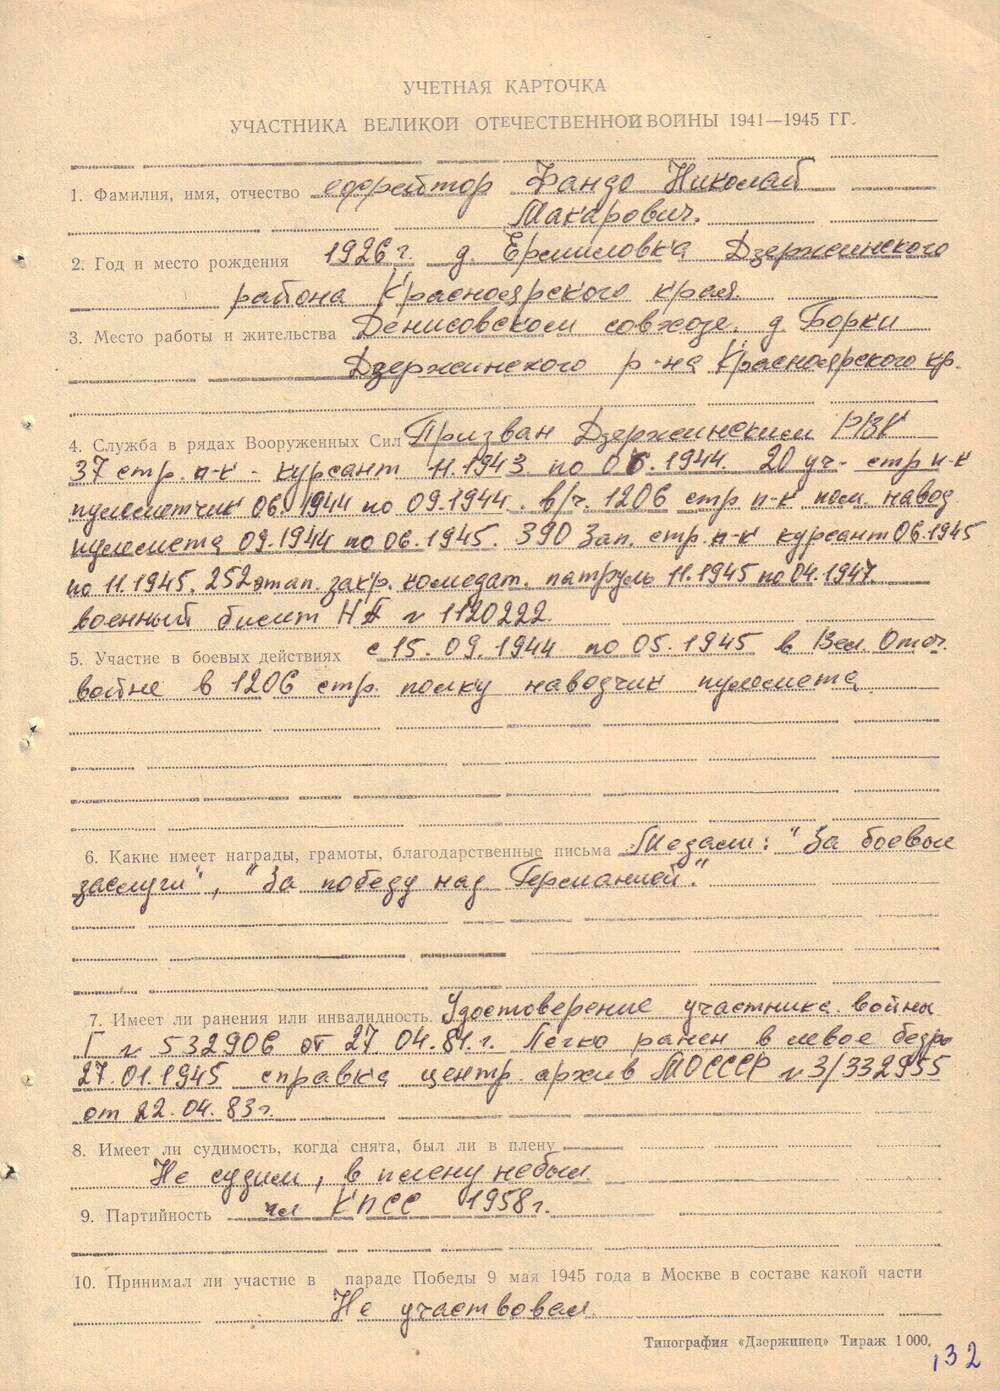 УЧЕТНАЯ КАРТОЧКА
УЧАСТНИКА ВЕЛИКОЙ ОТЕЧЕСТВЕННОЙ ВОЙНЫ 1941—1945 ГГ.
1. Фамилия, имя, отчество ефрейтор Фандо Николай
Макарович.
2. Год и место рождения 1926 г. д. Ермиловка Дзержинского
района Красноярского края.
3. Место работы и жительства Денисовском совхозе. д. Борки
Дзержинского р-на Красноярского кр.
4. Служба в рядах Вооруженных Сил Призван Дзержинским РВК
37 стр. п-к - курсант 11.1943 по 06.1944. 20 уч- стр п-к
пулеметчик 06.1944 по 09.1944. в/ч. 1206 стр п-к пом. навод
пулемета 09.1944 по 06.1945. 390 Зап. стр. п-к курсант 06.1945
по 11.1945. 252 этап. загр. комедат. патруль 11.1945 по 04.1947.
военный билет НП № 1120222.
5. Участие в боевых действиях с 15.09.1944 по 05.1945 в Вел. Отеч.
войне в 1206 стр. полку наводчик пулемета
6. Какие имеет награды, грамоты, благодарственные письма Медали: "За боевые
заслуги", "За победу над Германией."
7. Имеет ли ранения или инвалидность. Удостоверение участника войны
Г № 532906 от 27.04.81.г. Легко ранен в левое бедро
27.01.1945 справка центр. архив МО СССР № 3/332955
от 22.04.83г.
8. Имеет ли судимость, когда снята, был ли в плену
Не судим, в плену небыл.
9. Партийность чл КПСС 1958г.
10. Принимал ли участие в параде Победы 9 мая 1945 года в Москве в составе какой части
Не участвовал.
Типография «Дзержинец» Тираж 1 000.
132